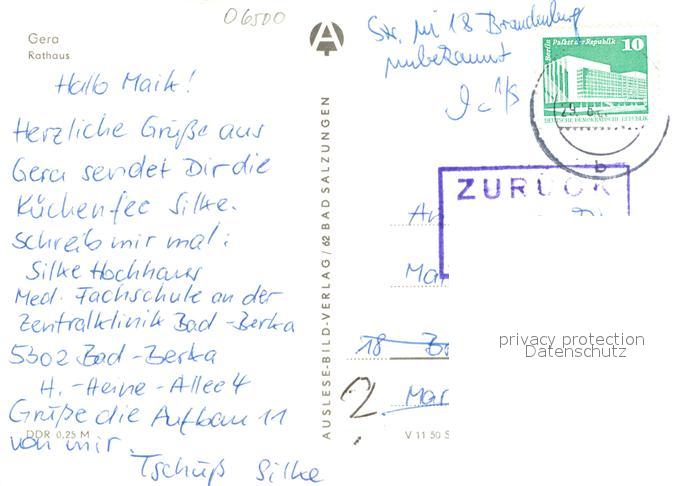 06500
Gera
Rathaus
Hallo Maik!
Herzliche Grüße aus
Gera sendet Dir die
Küchenfee Silke.
Schreib mir mal:
Silke Hochhaus
Med. Fachschule an der
Zentralklinik Bad-Berka
5302 Bad-Berka
H.-Heine-Allee 4
Grüße die Aufbau 11
von mir.
Tschüß Silke
DDR 0,25 M
AUSLESE-BILD-VERLAG/62 BAD SALZUNGEN
Str. in 18 Brandenburg
unbekannt
Berlin Palast der Republik 10
DEUTSCHE DEMOKRATISCHE REPUBLIK
b
ZURÜCK
An
Mai
18 B
2.
Mar
V 11 50 S
privacy protection
Datenschutz